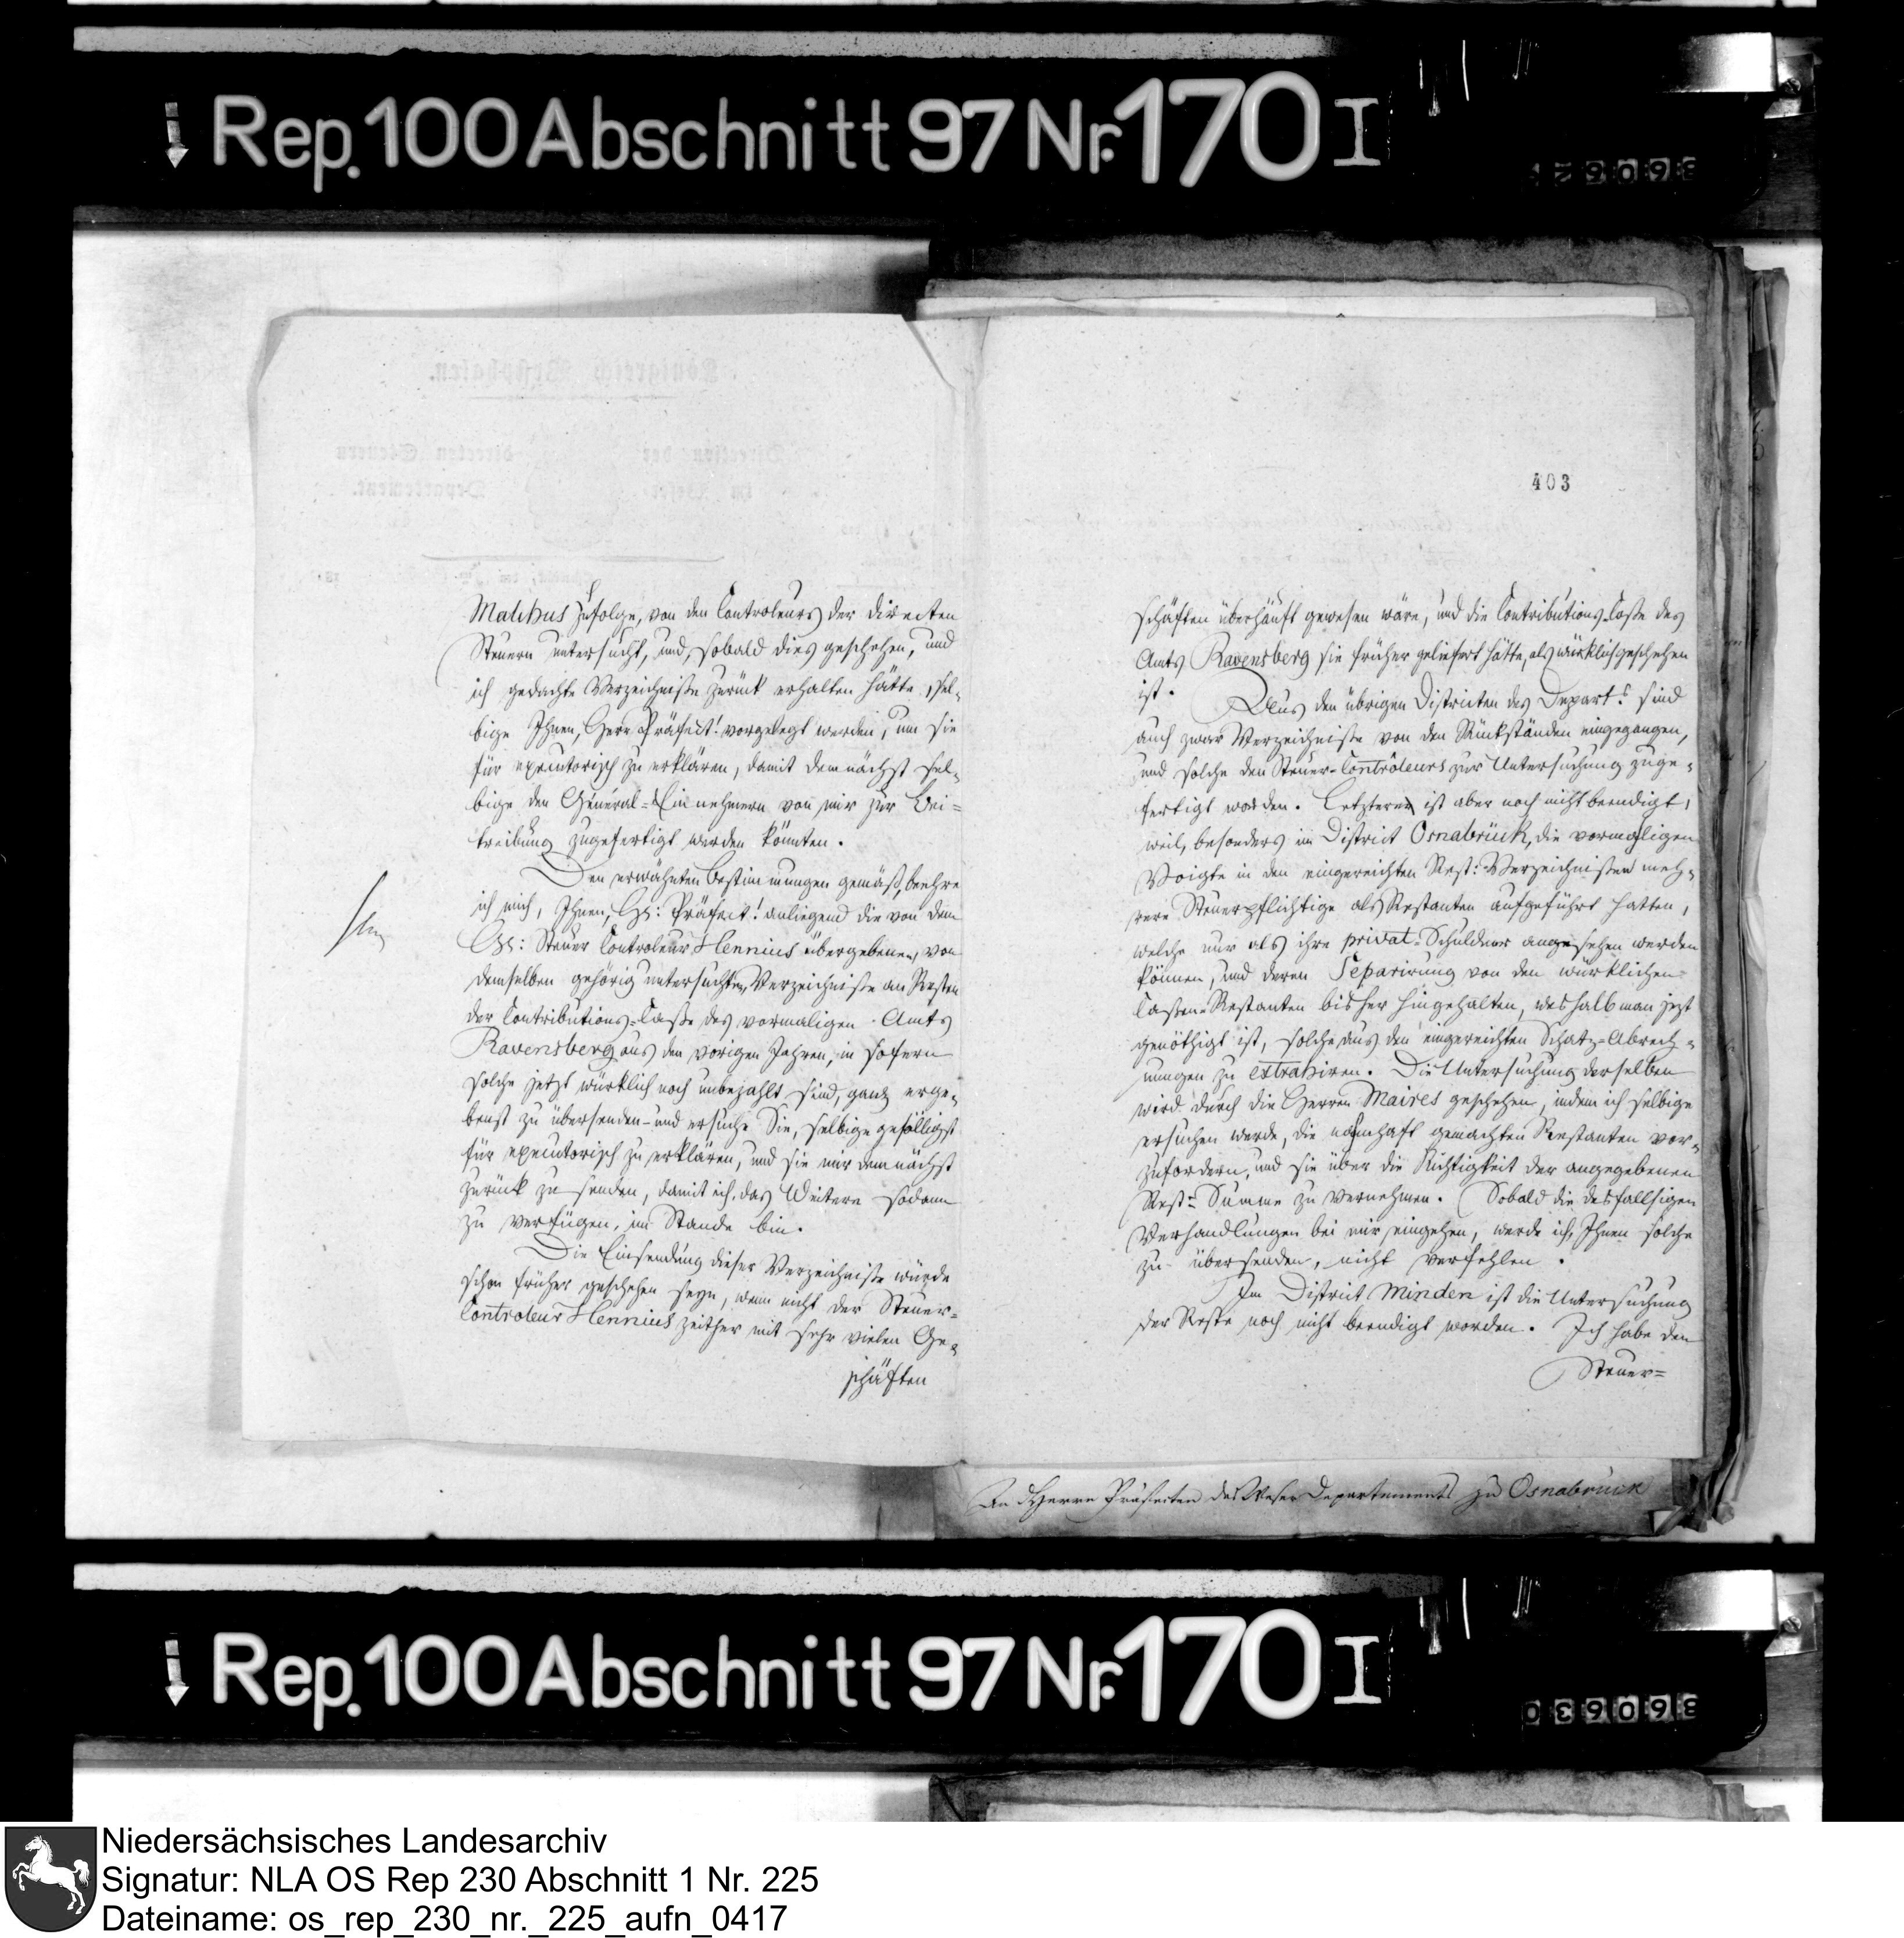 Rep. 100 Abschnitt 97 Nr. 170 I
Malchus zufolge, von den Controleurs der directen
Steuern untersucht, und, sobald dies geschehen, und
ich gedachte Verzeichniße zurück erhalten hätte, sel-
bige Ihnen, Herr Präfect! vorgelegt werden, um sie
für executorisch zu erklären, damit demnächst sel-
bige den Général-Einnehmern von mir zur Bei-
treibung zugefertigt werden könnten.
Den erwähnten Bestimmungen gemäß, beehre
ich mich, Ihnen, Hr: Präfect! anliegend die von dem
Hr: Steuer Controleur Hennius übergebenen, von
demselben gehörig untersuchten Verzeichniße an Resten
der Contributions-Caße des vormaligen Amts
Ravensberg aus den vorigen Jahren, in sofern
solche jetzt würklich noch unbezahlt sind, ganz erge-
benst zu übersenden und ersuche Sie, selbige gefälligst
für executorisch zu erklären, und sie mir demnächst
zurück zu senden, damit ich das Weitere sodann
zu verfügen, im Stande bin.
Die Einsendung dieser Verzeichniße würde
schon früher geschehen seyn, wenn nicht der Steuer-
Controleur Hennius zeither mit sehr vielen Ge-
schäften
403
schäften überhäuft gewesen wäre, und die Contributions-Caße des
Amts Ravensberg sie früher geliefert hätte, als würklich geschehen
ist. Aus den übrigen Districten des Departs. sind
auch zwar Verzeichniße von den Rückständen eingegangen,
und solche den Steuer-Contrôleurs zur Untersuchung zuge-
fertigt worden. Letztere ist aber noch nicht beendigt,
weil, besonders im District Osnabrück, die vormaligen
Voigte in den eingereichten Rest: Verzeichnißen meh-
rere Steuerpflichtige als Restanten aufgeführt hatten,
welche nur als ihre privat-Schuldner angesehen werden
können, und deren Separirung von den würklichen
Caßen-Restanten bisher hingehalten, weshalb man jezt
genöthigt ist, solche aus den eingereichten Schatz-Abrech-
nungen zu extrahiren. Die Untersuchung derselben
wird durch die Herren Maires geschehen, indem ich selbige
ersuchen werde, die namhaft gemachten Restanten vor-
zufordern, und sie über die Richtigkeit der angegebenen
Rest-Summe zu vernehmen. Sobald die desfallsigen
Verhandlungen bei mir eingehen, werde ich, Ihnen solche
zu übersenden, nicht verfehlen.
Im District Minden ist die Untersuchung
der Reste noch nicht beendigt worden. Ich habe den
Steuer-
An Herrn Präfecten des Weser Departements zu Osnabrück
Rep. 100 Abschnitt 97 Nr. 170 I
Niedersächsisches Landesarchiv
Signatur: NLA OS Rep 230 Abschnitt 1 Nr. 225
Dateiname: os_rep_230_nr._225_aufn_0417